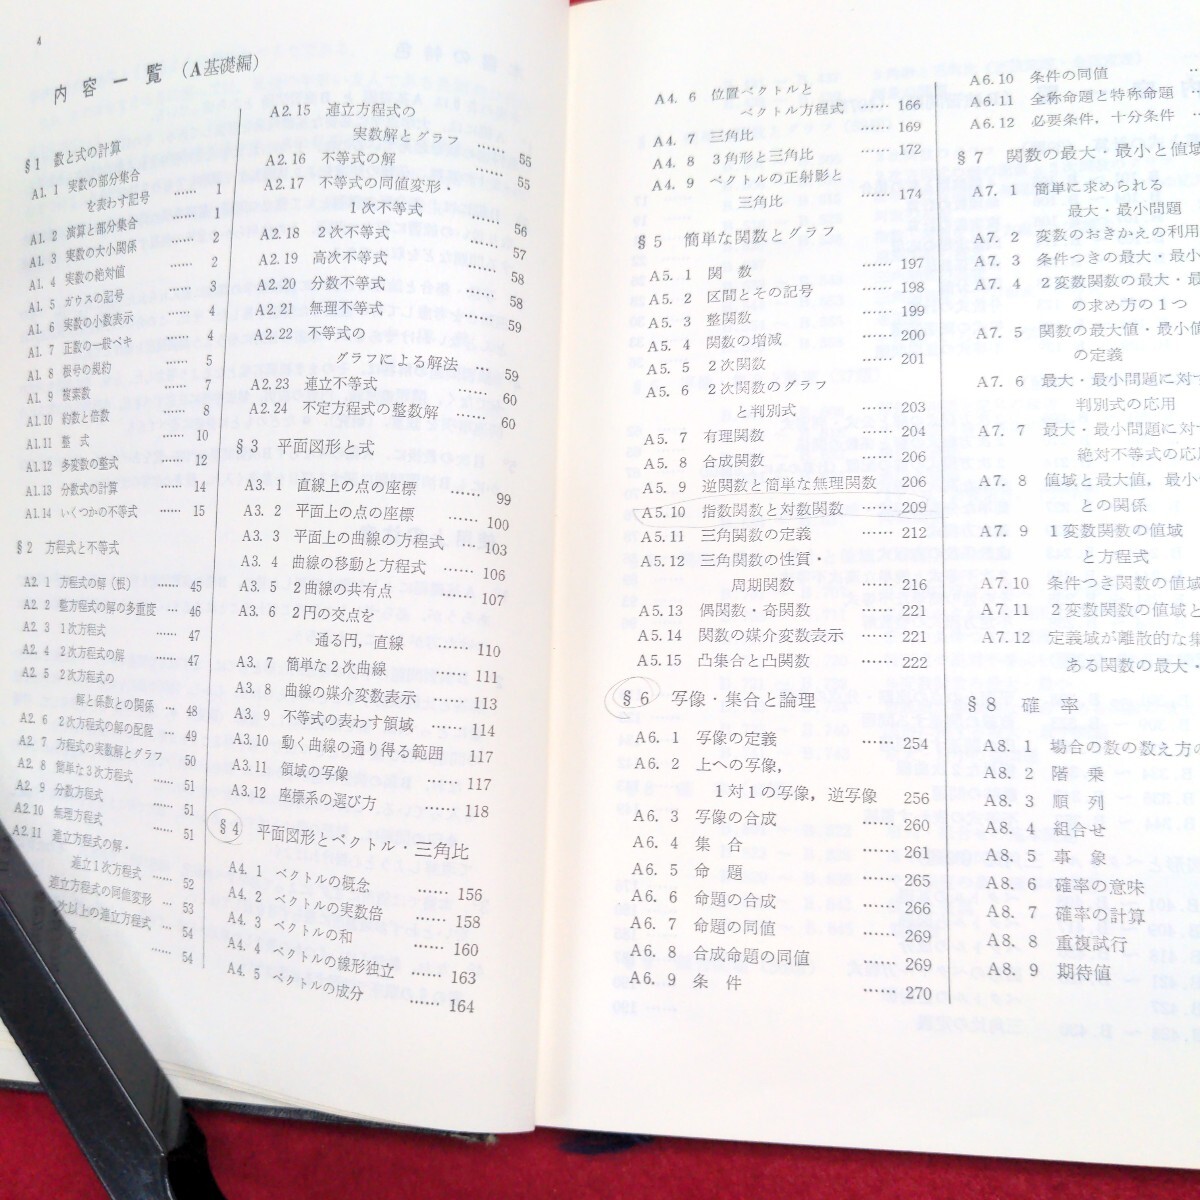 4
内容一覧(A基礎編)
§1 数と式の計算
A1. 1 実数の部分集合
を表わす記号 …… 1
A1. 2 演算と部分集合 …… 1
A1. 3 実数の大小関係 …… 2
A1. 4 実数の絶対値 …… 2
A1. 5 ガウスの記号 …… 3
A1. 6 実数の小数表示 …… 4
A1. 7 正数の一般ベキ …… 4
A1. 8 根号の規約 …… 5
A1. 9 複素数 …… 7
A1.10 約数と倍数 …… 8
A1.11 整式 …… 10
A1.12 多変数の整式 …… 12
A1.13 分数式の計算 …… 14
A1.14 いくつかの不等式 …… 15
§2 方程式と不等式
A2. 1 方程式の解(根) …… 45
A2. 2 整方程式の解の多重度 … 46
A2. 3 1次方程式 …… 47
A2. 4 2次方程式の解 …… 47
A2. 5 2次方程式の
解と係数との関係 … 48
A2. 6 2次方程式の解の配置 … 49
A2. 7 方程式の実数解とグラフ 50
A2. 8 簡単な3次方程式 …… 51
A2. 9 分数方程式 …… 51
A2.10 無理方程式 …… 51
A2.11 連立方程式の解・
連立1次方程式 …… 52
連立方程式の同値変形 … 53
次以上の連立方程式 … 54
…… 54
A2.15 連立方程式の
実数解とグラフ …… 55
A2.16 不等式の解 …… 55
A2.17 不等式の同値変形・
1次不等式 …… 56
A2.18 2次不等式 …… 57
A2.19 高次不等式 …… 58
A2.20 分数不等式 …… 58
A2.21 無理不等式 …… 59
A2.22 不等式の
グラフによる解法 … 59
A2.23 連立不等式 …… 60
A2.24 不定方程式の整数解 …… 60
§3 平面図形と式
A3. 1 直線上の点の座標 …… 99
A3. 2 平面上の点の座標 …… 100
A3. 3 平面上の曲線の方程式 … 103
A3. 4 曲線の移動と方程式 …… 106
A3. 5 2曲線の共有点 …… 107
A3. 6 2円の交点を
通る円,直線 …… 110
A3. 7 簡単な2次曲線 …… 111
A3. 8 曲線の媒介変数表示 …… 113
A3. 9 不等式の表わす領域 …… 114
A3.10 動く曲線の通り得る範囲 117
A3.11 領域の写像 …… 117
A3.12 座標系の選び方 …… 118
§4 平面図形とベクトル・三角比
A4. 1 ベクトルの概念 …… 156
A4. 2 ベクトルの実数倍 …… 158
A4. 3 ベクトルの和 …… 160
A4. 4 ベクトルの線形独立 …… 163
A4. 5 ベクトルの成分 …… 164
A4. 6 位置ベクトルと
ベクトル方程式 …… 166
A4. 7 三角比 …… 169
A4. 8 3角形と三角比 …… 172
A4. 9 ベクトルの正射影と
三角比 …… 174
§5 簡単な関数とグラフ
A5. 1 関数 …… 197
A5. 2 区間とその記号 …… 198
A5. 3 整関数 …… 199
A5. 4 関数の増減 …… 200
A5. 5 2次関数 …… 201
A5. 6 2次関数のグラフ
と判別式 …… 203
A5. 7 有理関数 …… 204
A5. 8 合成関数 …… 206
A5. 9 逆関数と簡単な無理関数 206
A5.10 指数関数と対数関数 …… 209
A5.11 三角関数の定義 …… 212
A5.12 三角関数の性質・
周期関数 …… 216
A5.13 偶関数・奇関数 …… 221
A5.14 関数の媒介変数表示 …… 221
A5.15 凸集合と凸関数 …… 222
§6 写像・集合と論理
A6. 1 写像の定義 …… 254
A6. 2 上への写像,
1対1の写像,逆写像 256
A6. 3 写像の合成 …… 260
A6. 4 集合 …… 261
A6. 5 命題 …… 265
A6. 6 命題の合成 …… 266
A6. 7 命題の同値 …… 269
A6. 8 合成命題の同値 …… 269
A6. 9 条件 …… 270
A6.10 条件の同値
A6.11 全称命題と特称命題
A6.12 必要条件,十分条件
§7 関数の最大・最小と値域
A7. 1 簡単に求められる
最大・最小問題
A7. 2 変数のおきかえの利用
A7. 3 条件つきの最大・最小
A7. 4 2変数関数の最大・最
の求め方の1つ
A7. 5 関数の最大値・最小値
の定義
A7. 6 最大・最小問題に対す
判別式の応用
A7. 7 最大・最小問題に対す
絶対不等式の応用
A7. 8 値域と最大値,最小
との関係
A7. 9 1変数関数の値域
と方程式
A7.10 条件つき関数の値域
A7.11 2変数関数の値域と
A7.12 定義域が離散的な集
ある関数の最大・
§8 確率
A8. 1 場合の数の数え方の
A8. 2 階乗
A8. 3 順列
A8. 4 組合せ
A8. 5 事象
A8. 6 確率の意味
A8. 7 確率の計算
A8. 8 重複試行
A8. 9 期待値